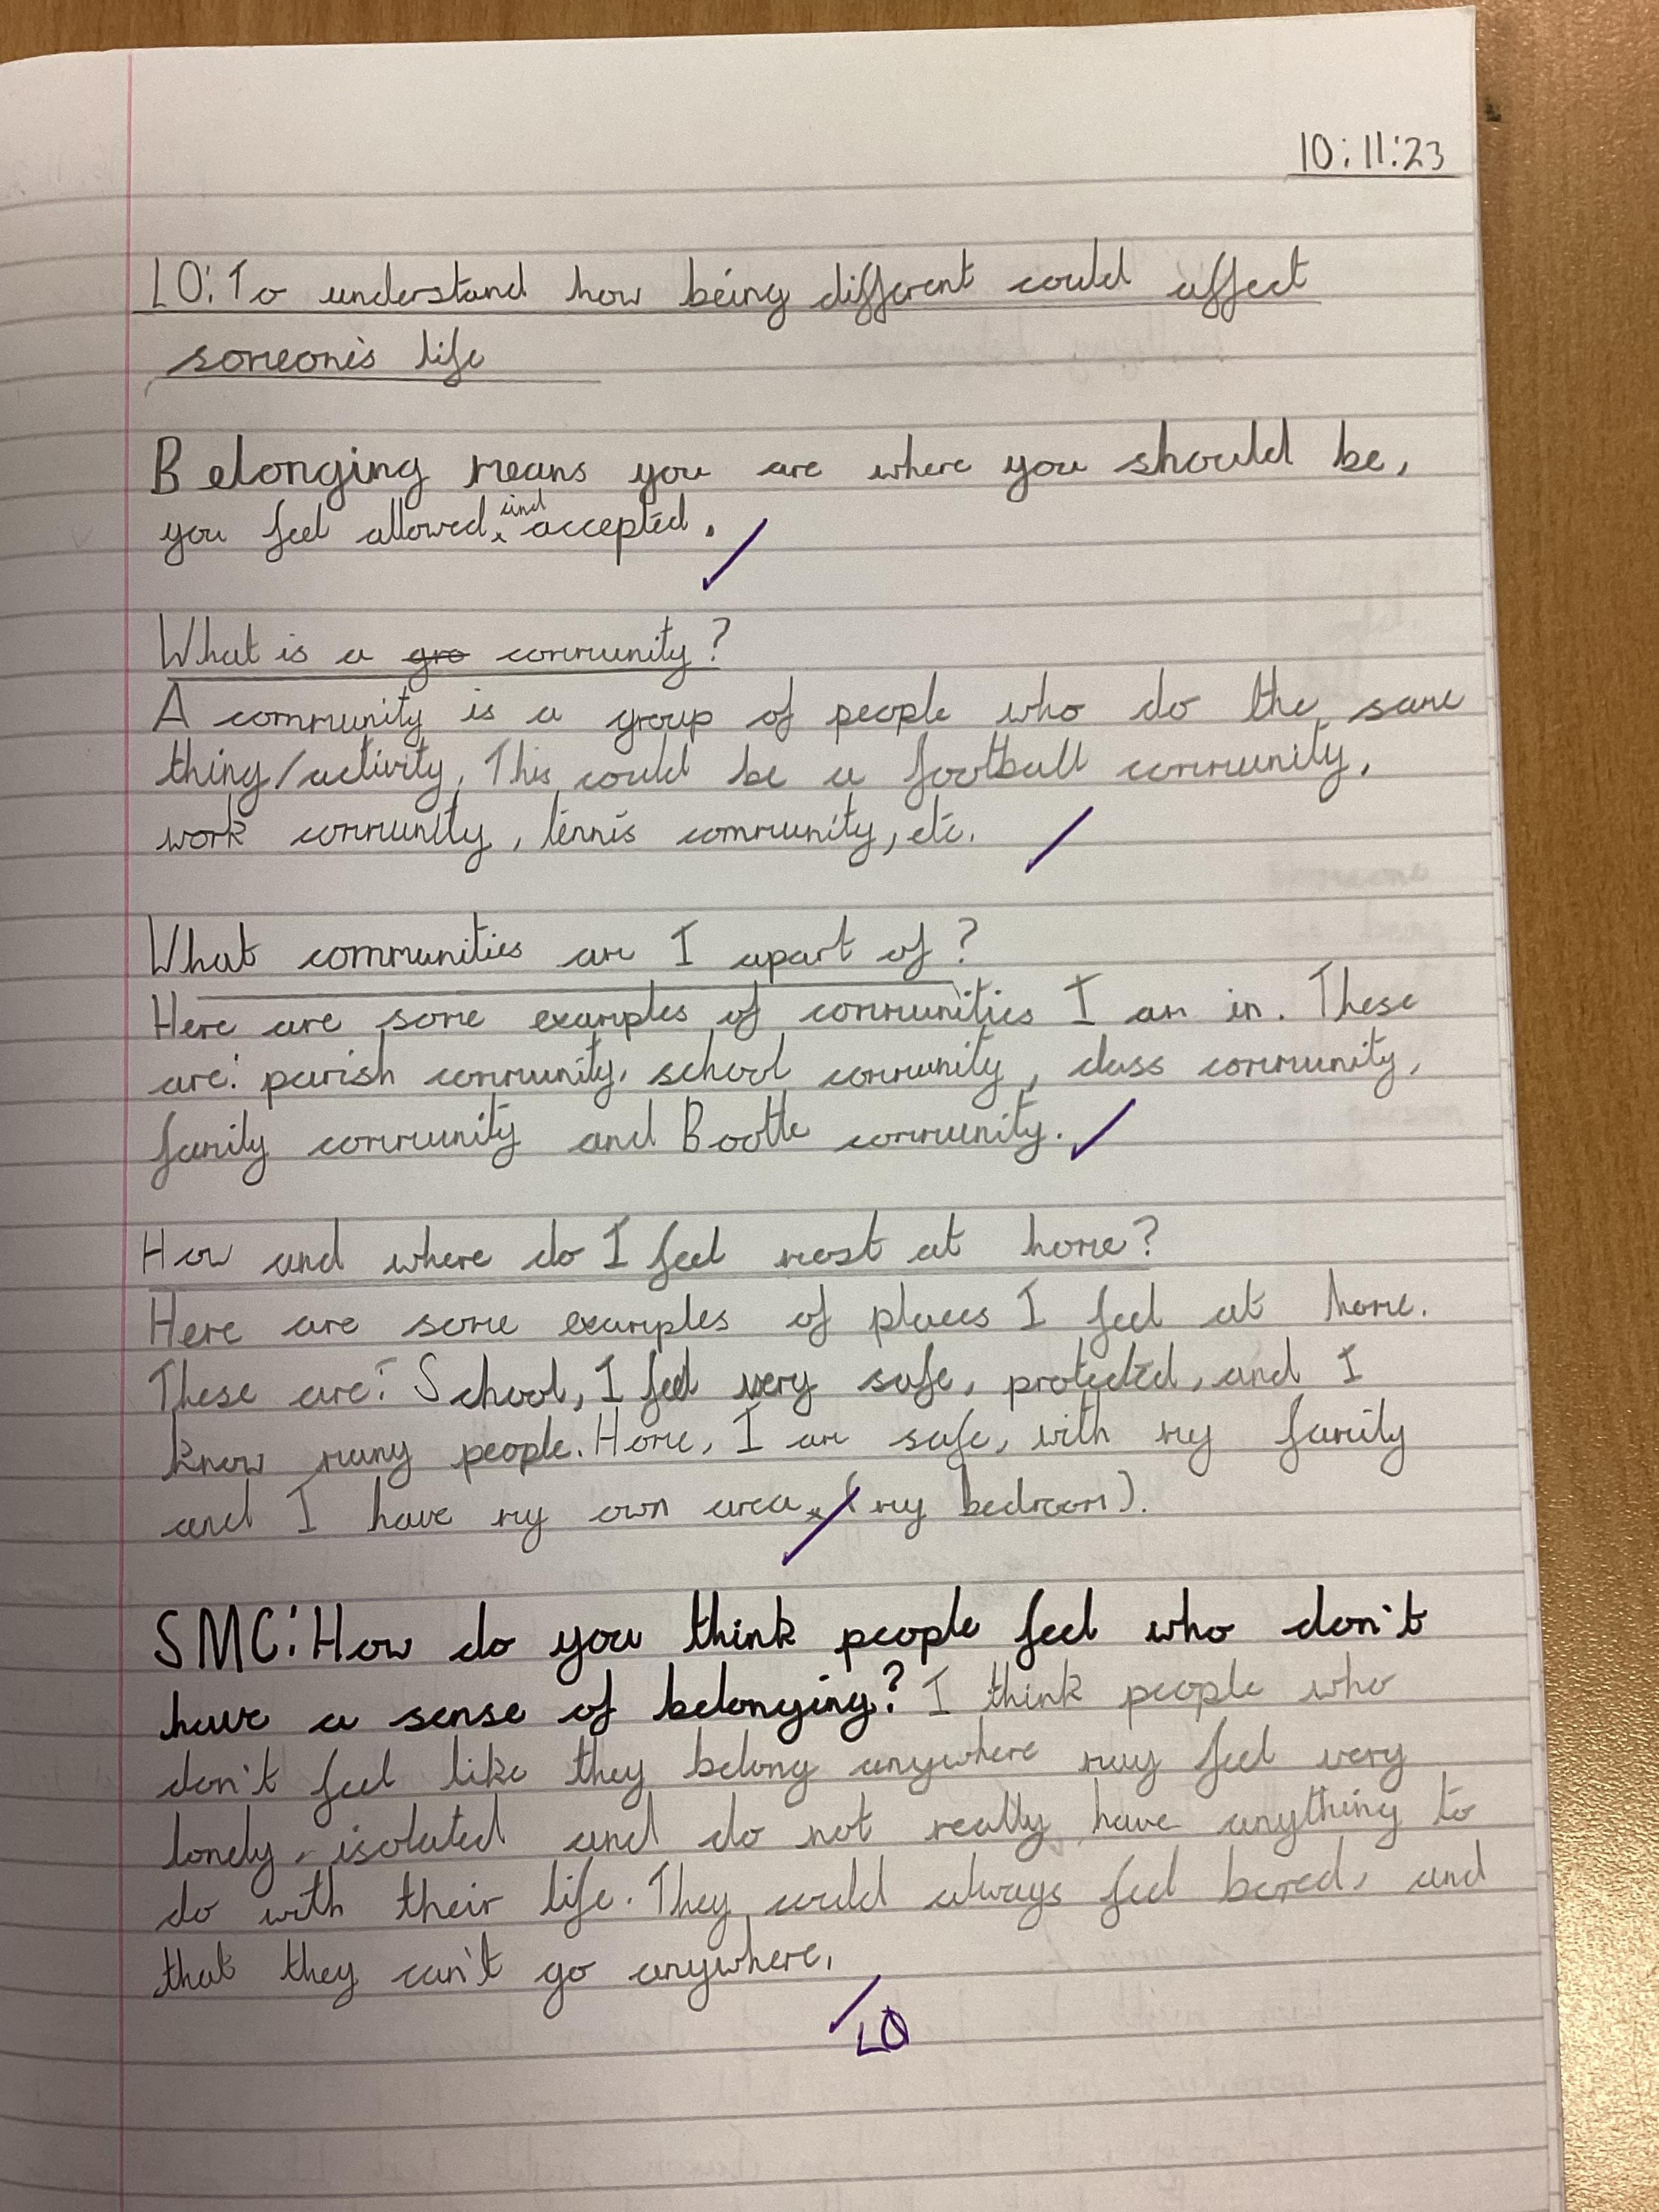 10:11:23
LO: To understand how being different could affect
someone's life
Belonging means you are where you should be,
you feel allowed, and accepted.
What is a gro community?
A community is a group of people who do the same
thing/activity. This could be a football community,
work community, tennis community, etc.
What communities are I apart of?
Here are some examples of communities I am in. These
are: parish community, school community, class community,
family community and Bootle community.
How and where do I feel most at home?
Here are some examples of places I feel at home.
These are: School, I feel very safe, protected, and I
know many people. Home, I am safe, with my family
and I have my own area (my bedroom).
SMC: How do you think people feel who don't
have a sense of belonging? I think people who
don't feel like they belong anywhere may feel very
lonely, isolated and do not really have anything to
do with their life. They could always feel bored, and
that they can't go anywhere.
LO